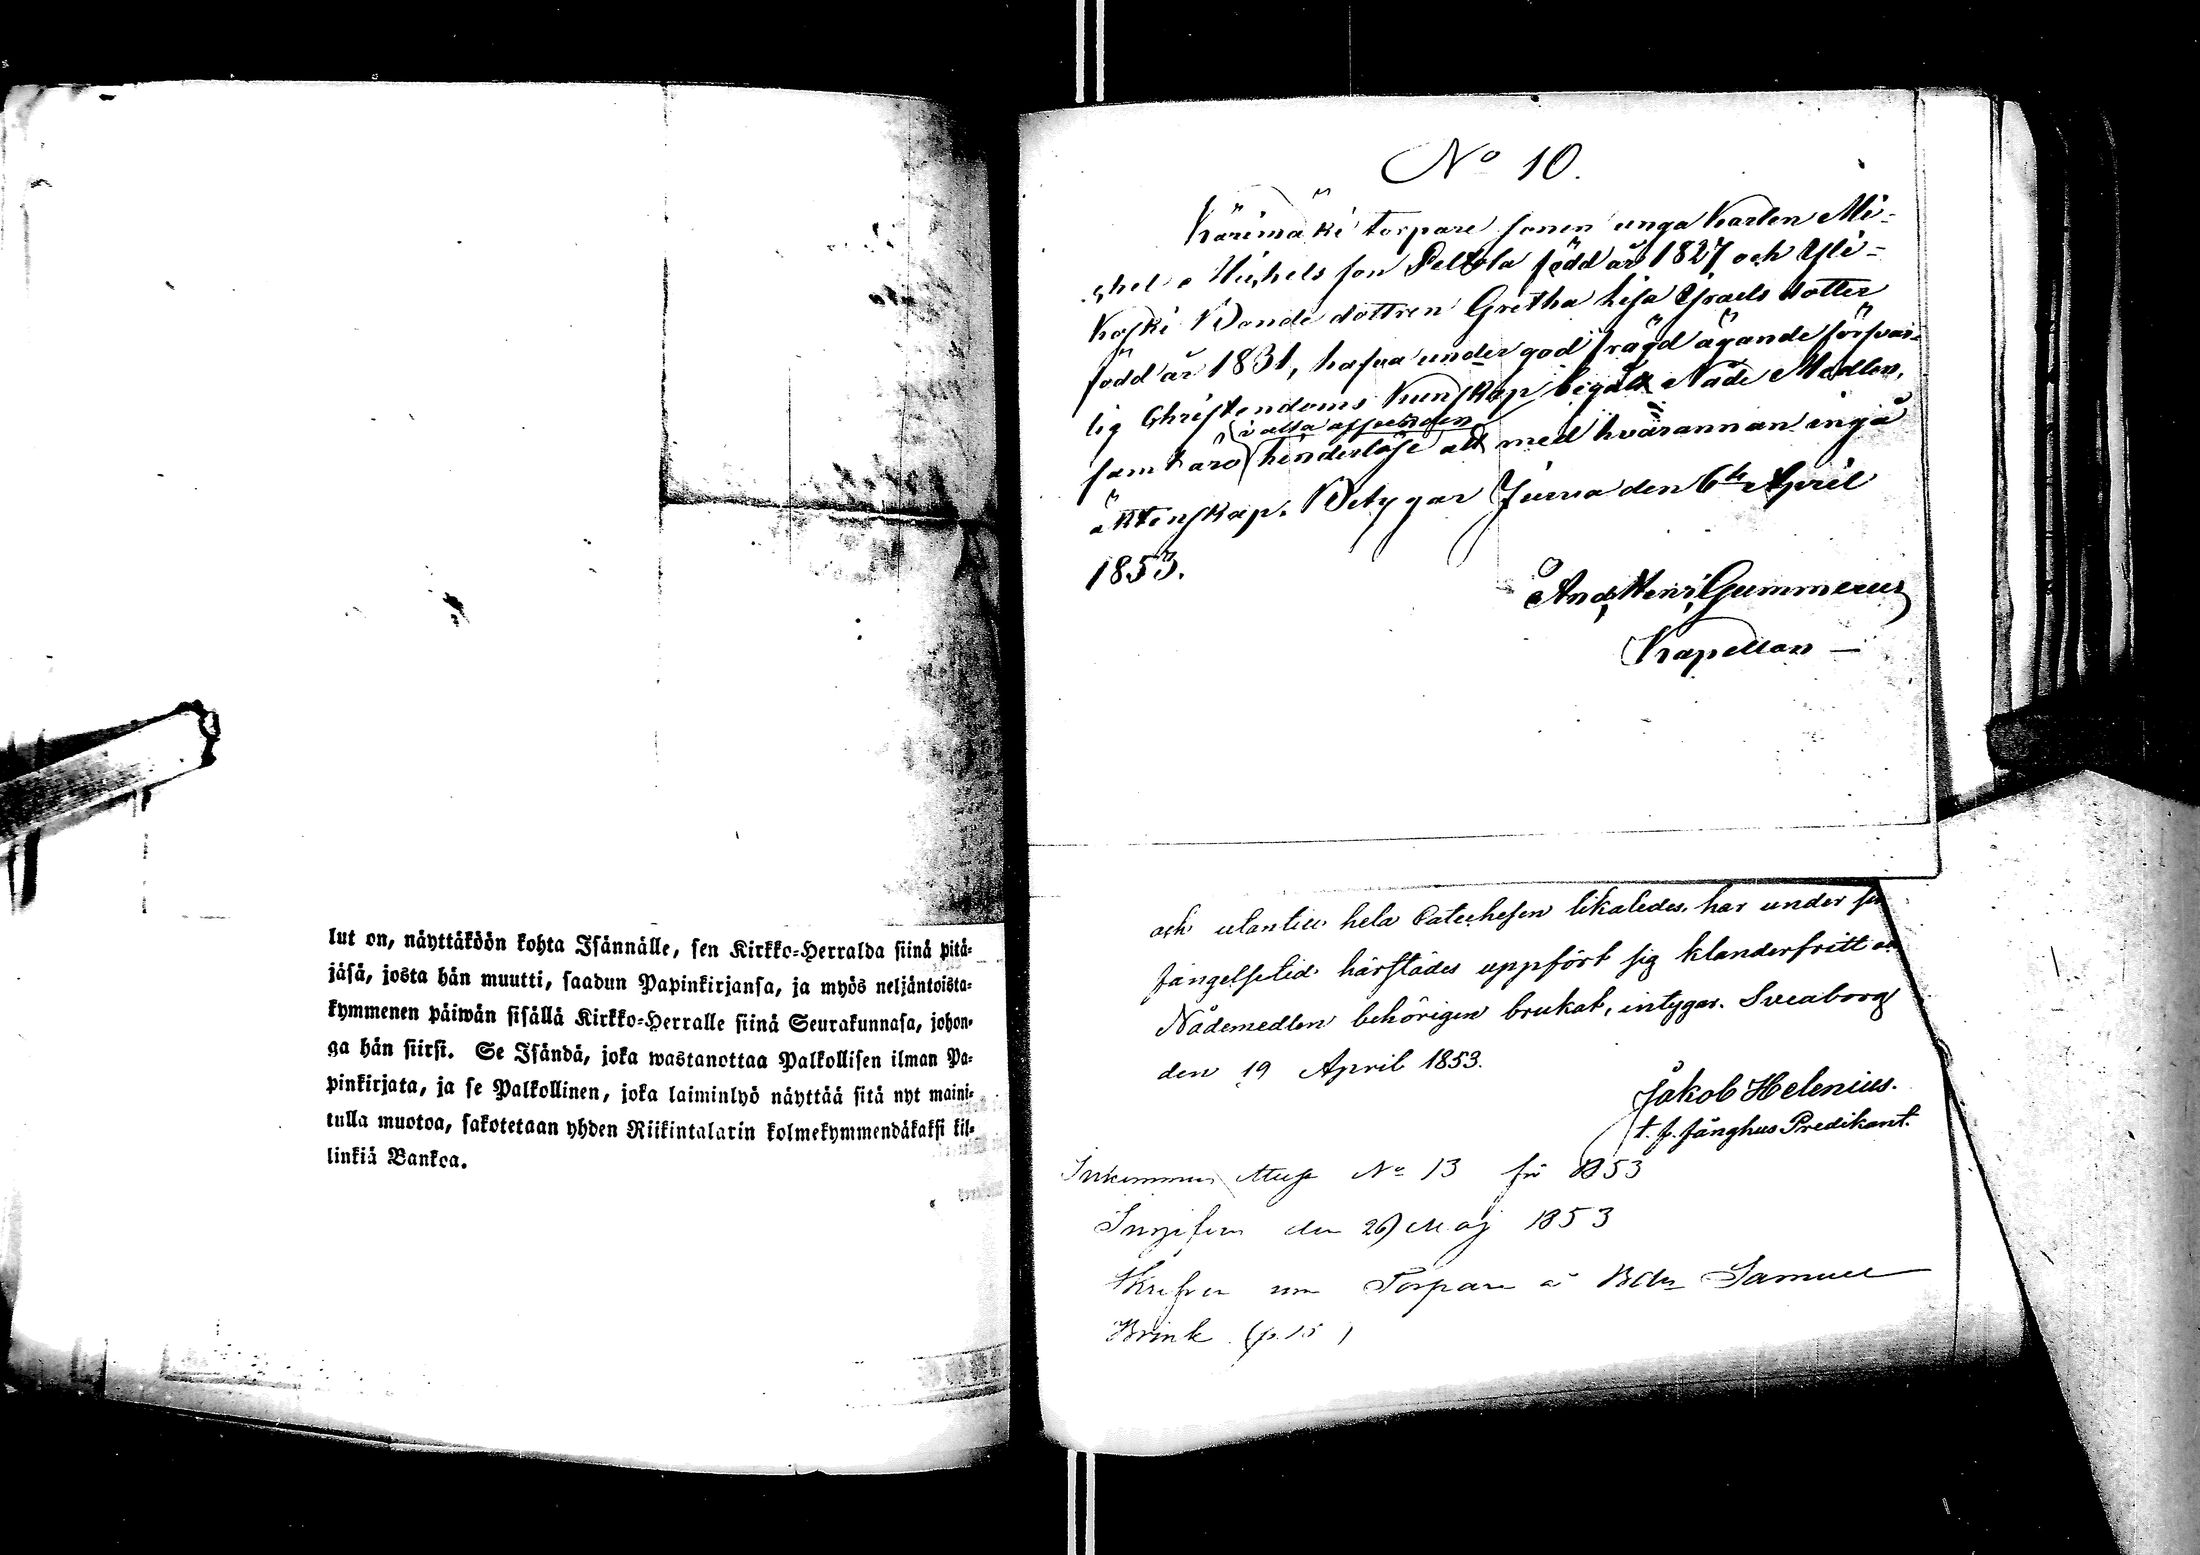 lut on, näyttäköön kohta Isännälle, sen Kirkko-Herralda siinä pitä-
jäsä, josta hän muutti, saadun Papinkirjansa, ja myös neljäntoista-
kymmenen päiwän sisällä Kirkko-Herralle siinä Seurakunnasa, johon-
ga hän siirsi. Se Isändä, joka wastanottaa Palkollisen ilman Pa-
pinkirjata, ja se Palkollinen, joka laiminlyö näyttää sitä nyt maini-
tulla muotoa, sakotetaan yhden Riikintalarin kolmekymmendäkaksi kil-
linkiä Bankoa.
No 10.
Kärimäki torpare sonen unga Karlen Mi-
chel Michels son Peltola född år 1827 och Yli-
koski Bonde dottren Gretha Lisa Israels dotter
född år 1831, hafva under god frägd ägande försvar-
lig Christendoms Kunskap begått Nåde Medlen,
i alla afseenden
samt äro hinderlöse att med hvarannan ingå
äktenskap. Betygar Jurva den 6te April
1853.
And. Henr. Gummerus
Kapellan
och utantill hela Catechesen likaledes, har under sin
fängelsetid härstädes uppfört sig klanderfritt
Nådemedlen behörigen brukat, intygar. Sveaborg
den 19 April 1853.
Jakob Helenius.
t. f. fänghus Predikant.
No 13 för 1853
den 26 Maj 1853
Torpare å Samuel
Brink (p. 15)